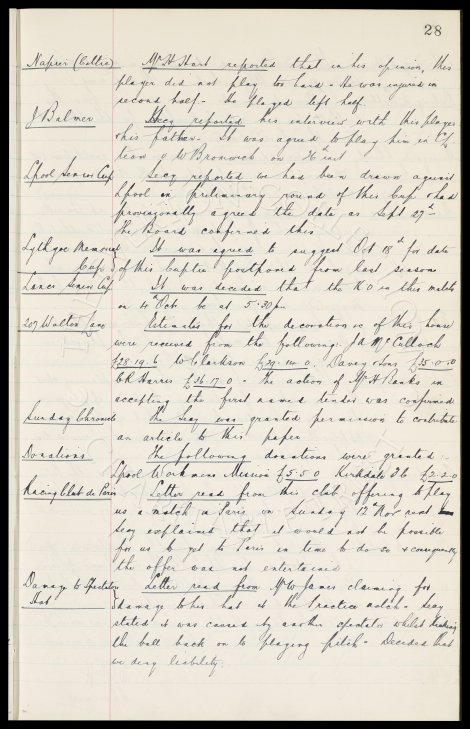 28
Napier (Celtic) Mr H Hart reported that in his opinion, this
player did not play too hard - He was injured in
second half - He played left half.
J Balmer Secy reported his interview with this player
& his father - It was agreed to play him in "A"
team v W Bromwich on inst
Lpool Senior Cup Secy reported we had been drawn against
Lpool in preliminary round of this Cup & had
provisionally agreed the date as Sept 27th
The Board confirmed this
Lythgoe Memorial Cup It was agreed to suggest Oct 18th for date
of this Cuptie postponed from last season
Lancs Senior Cup It was decided that the KO in this match
on 4th Oct be at 5.30pm
207 Walton Lane Estimates for the decorations of this house
were received from the following: J A McCulloch
£28.19.6 W Clarkson £29.14.0. Davey & Sons £35.0.0
C R Harris £36.17.0 - The action of Mr H Banks in
accepting the first named tender was confirmed
Sunday Chronicle The Secy was granted permission to contribute
an article to this paper
Donations The following donations were granted:-
Lpool Workmens Mission £5.5.0 Kirkdale £2.2.0
Racing Club de Paris Letter read from this club offering to play
us a match in Paris on Sunday 12th Nov next
Secy explained that it would not be possible
for us to get to Paris in time to do so & consequently
the offer was not entertained
Damage to Spectators Hat Letter read from Mr W James claiming for
damage to his hat at the Practice match - Secy
stated it was caused by another spectator whilst
the ball back on to playing pitch - Decided that
we deny liability.